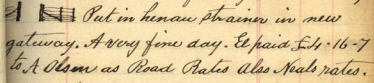 Put in henau strainer in new
gateway. A very fine day. El paid £4-16-7
to A Olsen as Road Rates Also Neals rates.